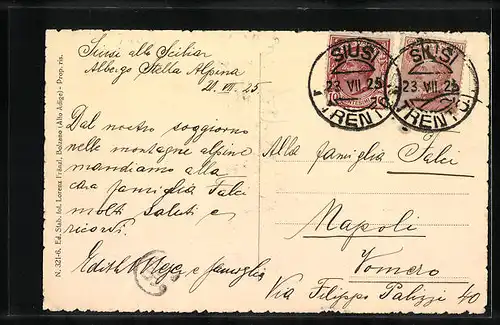 Siusi allo Sciliar
Albergo Stella Alpina
21. VII. 25
Dal nostro soggiorno
nelle montagne alpine
mandiamo alla
cara famiglia Falci
molti saluti e
ricordi.
Edith e famiglia
N. 321-6. Ed. Stab. fot. Lorenz Fränzl, Bolzano (Alto Adige) - Prop. ris.
SIUSI
23 VII 25
TRENTO
SIUSI
23 VII 25
TRENTO
Alla famiglia Falci
Napoli
Vomero
Via Filippo Palizzi 40